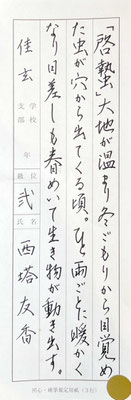 「啓蟄」大地が温まり冬ごもりから目覚め
た虫が穴から出てくる頃。ひと雨ごとに暖かく
なり日差しも春めいて生き物が動き出す。
学校
支部
佳玄
年
級位
弐
氏名
西塔友香